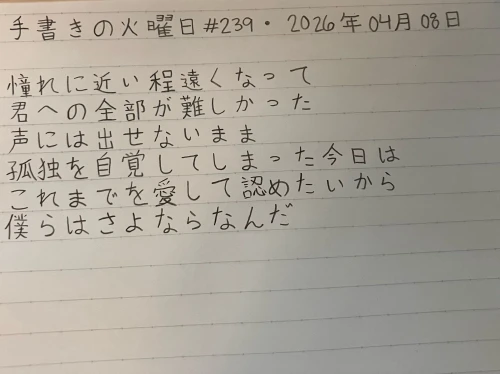 手書きの火曜日 #239・2026年04月08日
憧れに近い程遠くなって
君への全部が難しかった
声には出せないまま
孤独を自覚してしまった今日は
これまでを愛して認めたいから
僕らはさよならなんだ